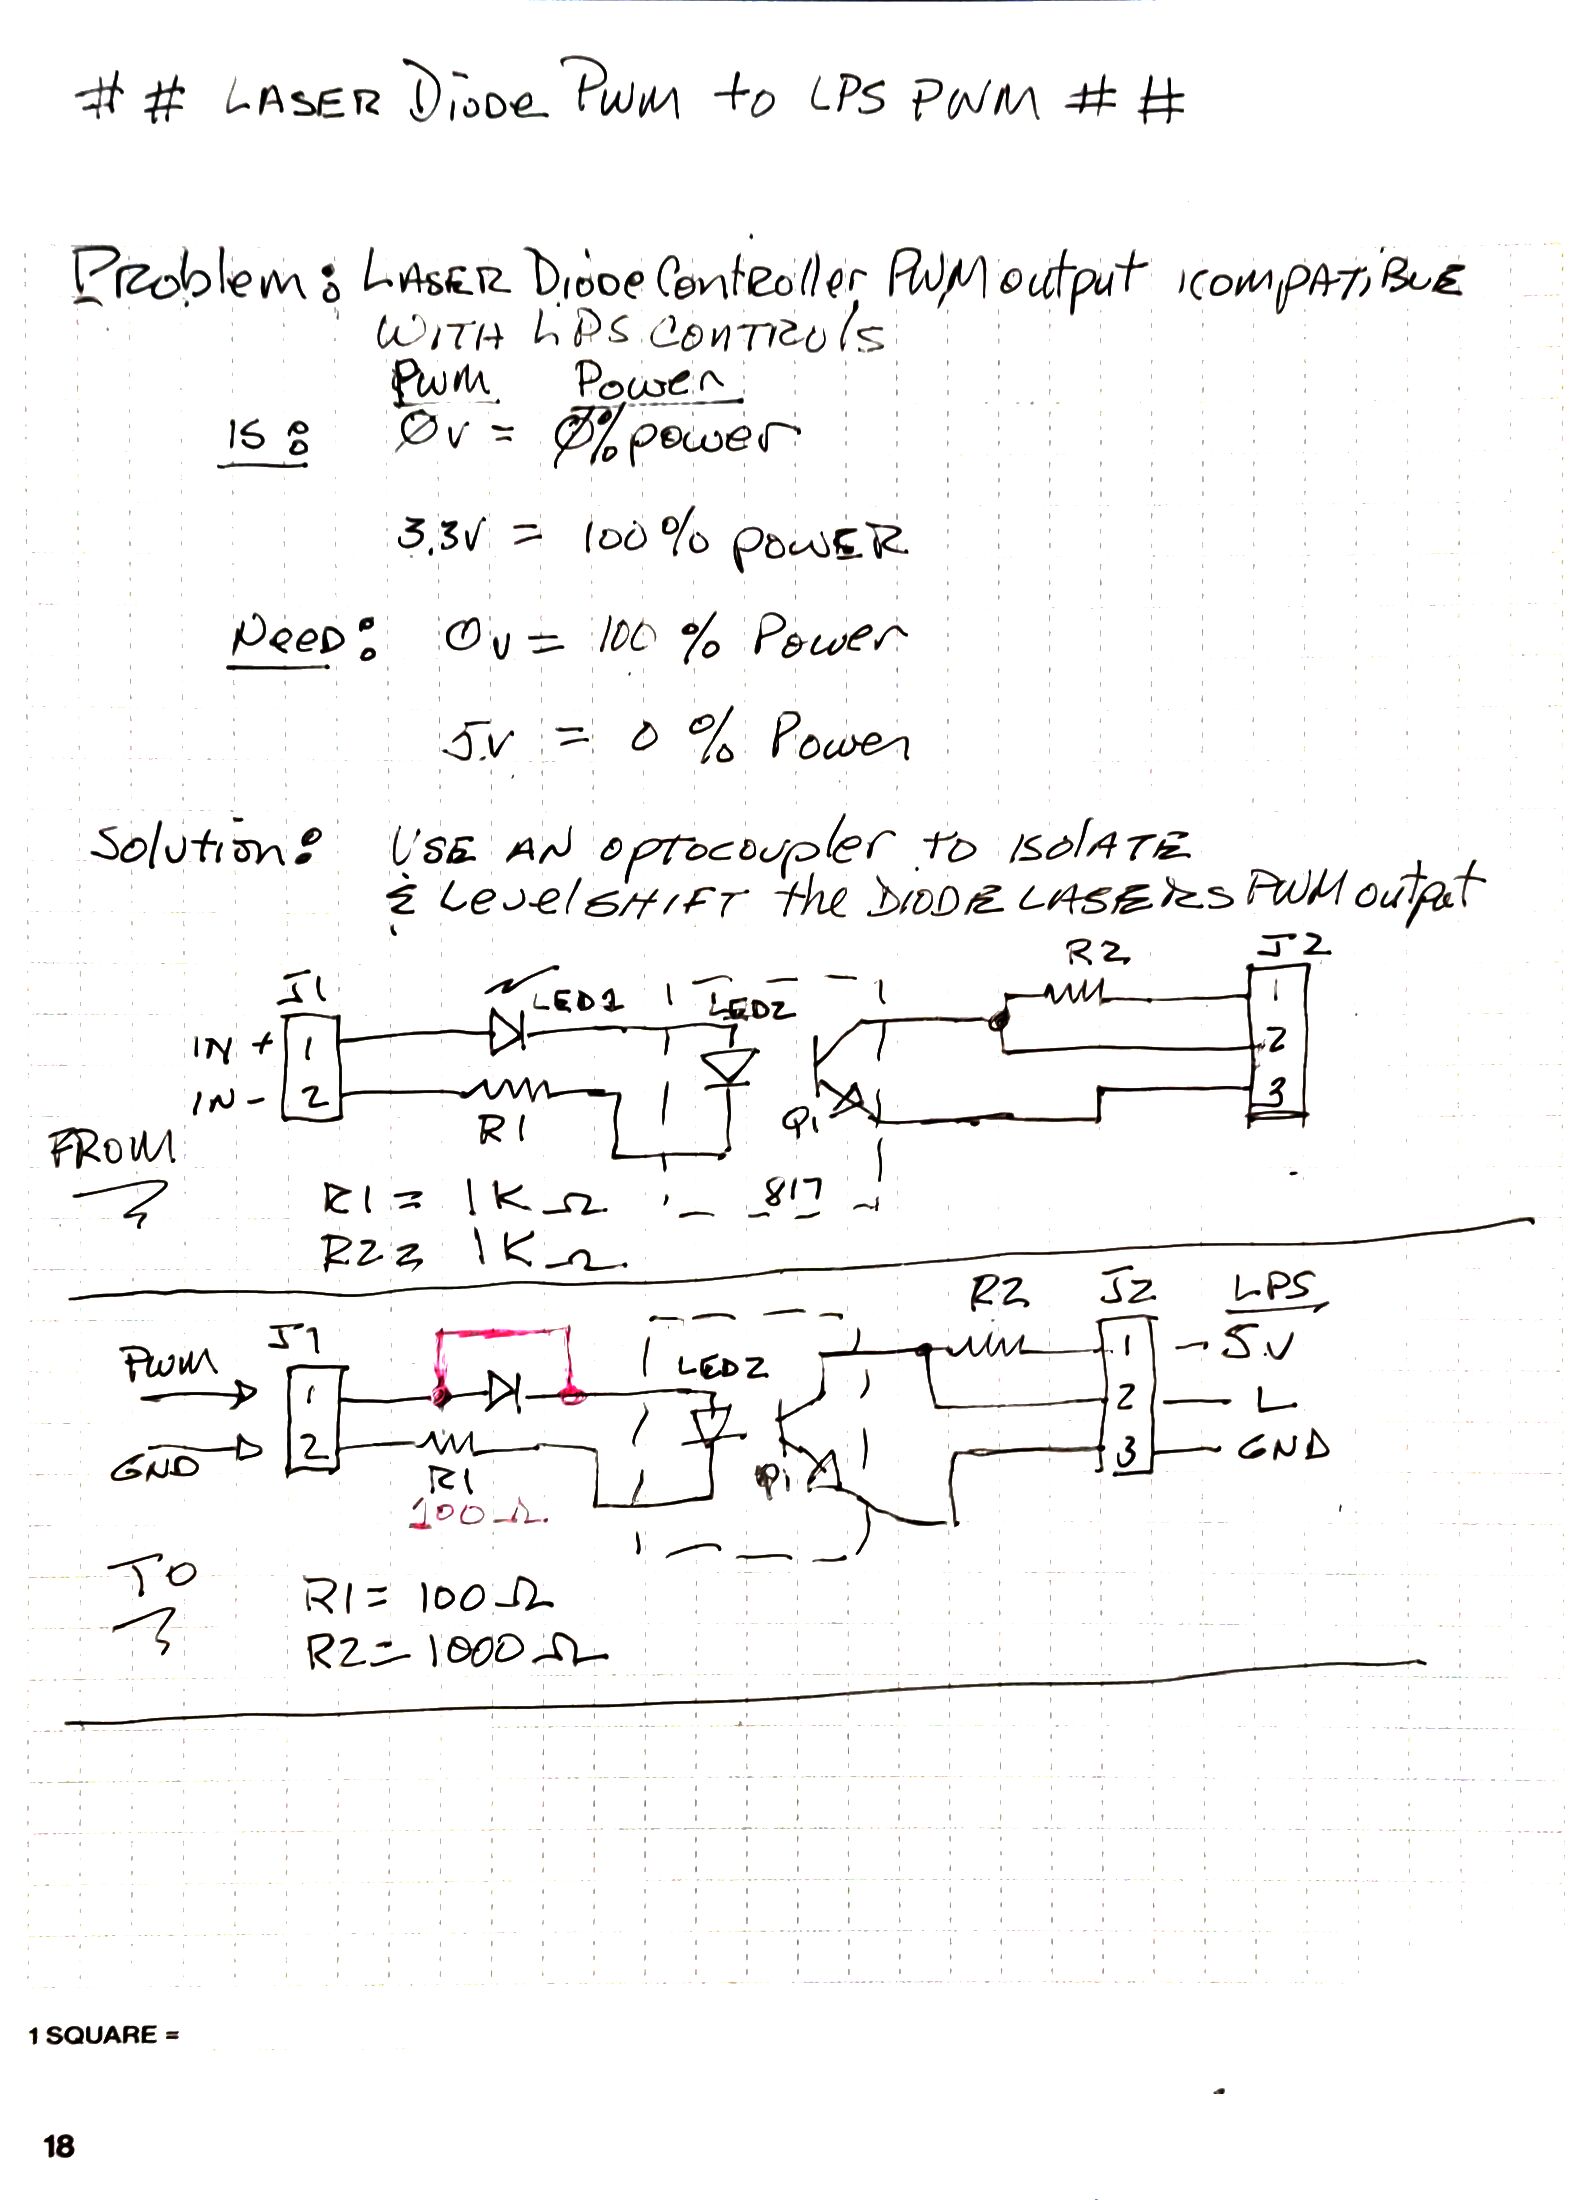 ## LASER Diode PWM to LPS PWM ##
Problem: LASER Diode Controller PWM output icompatible
WITH LPS Controls
PWM Power
IS: 0v = 0% power
3.3v = 100% power
Need: 0v = 100% Power
5v = 0% Power
Solution: USE AN optocoupler to isolate
& Level SHIFT the DIODE LASERS PWM output
R2 J2
J1 LED1 LED2 1
IN + 1 2
IN - 2 3
R1 Q1
FROM
817
R1 = 1K Ω
R2 = 1K Ω
R2 J2 LPS
J1
PWM 1 LED2 1 - 5V
2 - L
GND 2 3 - GND
R1 Q1
100 Ω
TO
R1 = 100 Ω
R2 = 1000 Ω
1 SQUARE =
18